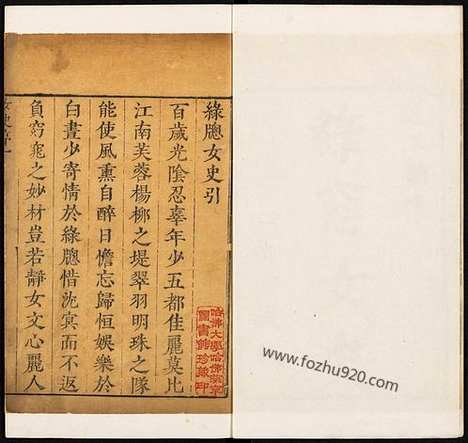 綠牕女史引
百歲光陰忍辜年少五都佳麗莫比
江南芙蓉楊柳之堤翠羽明珠之隊
能使風熏自醉日憺忘歸恒娛樂於
白晝少寄情於綠牕惜沈冥而不返
負窈窕之妙材豈若靜女文心麗人
哈佛大學哈佛燕京
圖書館珍藏印
www.fozhu920.com